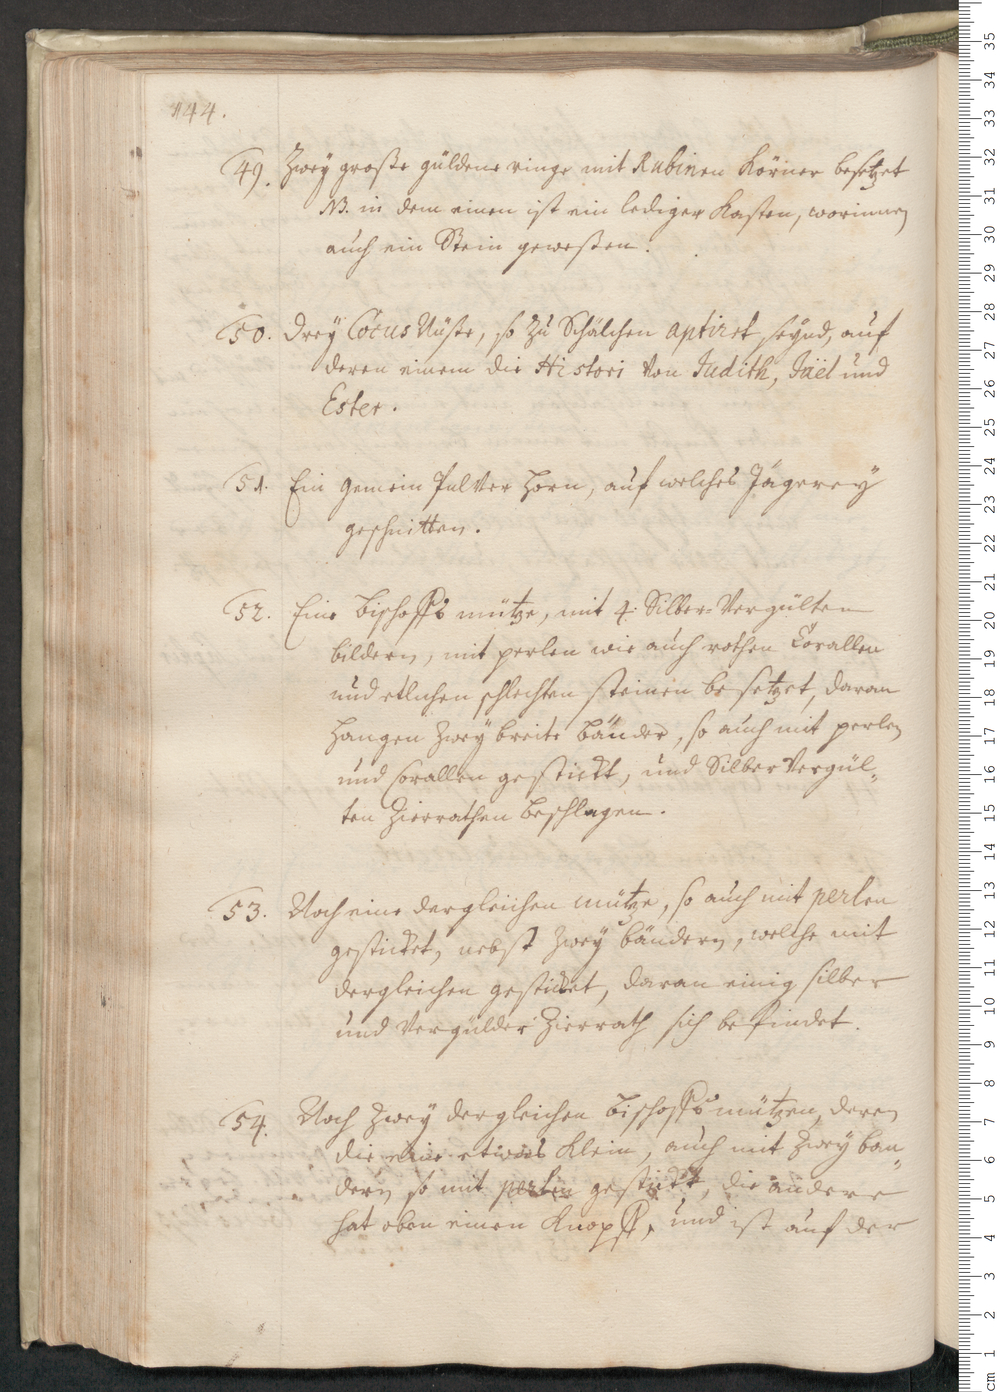 144.
49. Zwey große güldene ringe mit Rubinen Körner besetzet
NB. in dem einen ist ein lediger Kasten, worinnen
auch ein Stein geweßen.
50. Drey Cocus Nüße, so zu Schälchen aptiret seynd, auf
deren einem die Histori von Judith, Jaël und
Ester.
51. Ein gemein Pulver Horn, auf welches Jägerey
geschnitten.
52. Eine Bischoffs mütze, mit 4. Silber-Vergülten
bildern, mit perlen wie auch rothen Corallen
und etlichen schlechten steinen besetzet, daran
hangen zwey breite bänder, so auch mit perlen
und Corallen gestickt, und Silber Vergül-
ten Zierrathen beschlagen.
53. Noch eine dergleichen mütze, so auch mit perlen
gesticket, nebst zwey bändern, welche mit
dergleichen gesticket, daran einig silber
und Vergülder Zierrath sich befindet.
54. Noch zwey dergleichen Bischoffs mützen, deren
die eine etwas klein, auch mit zwey bän-
dern so mit perlen gestickt, die andere
hat oben einen Knopff, und ist auf der
35
34
33
32
31
30
29
28
27
26
25
24
23
22
21
20
19
18
17
16
15
14
13
12
11
10
9
8
7
6
5
4
3
2
1
cm